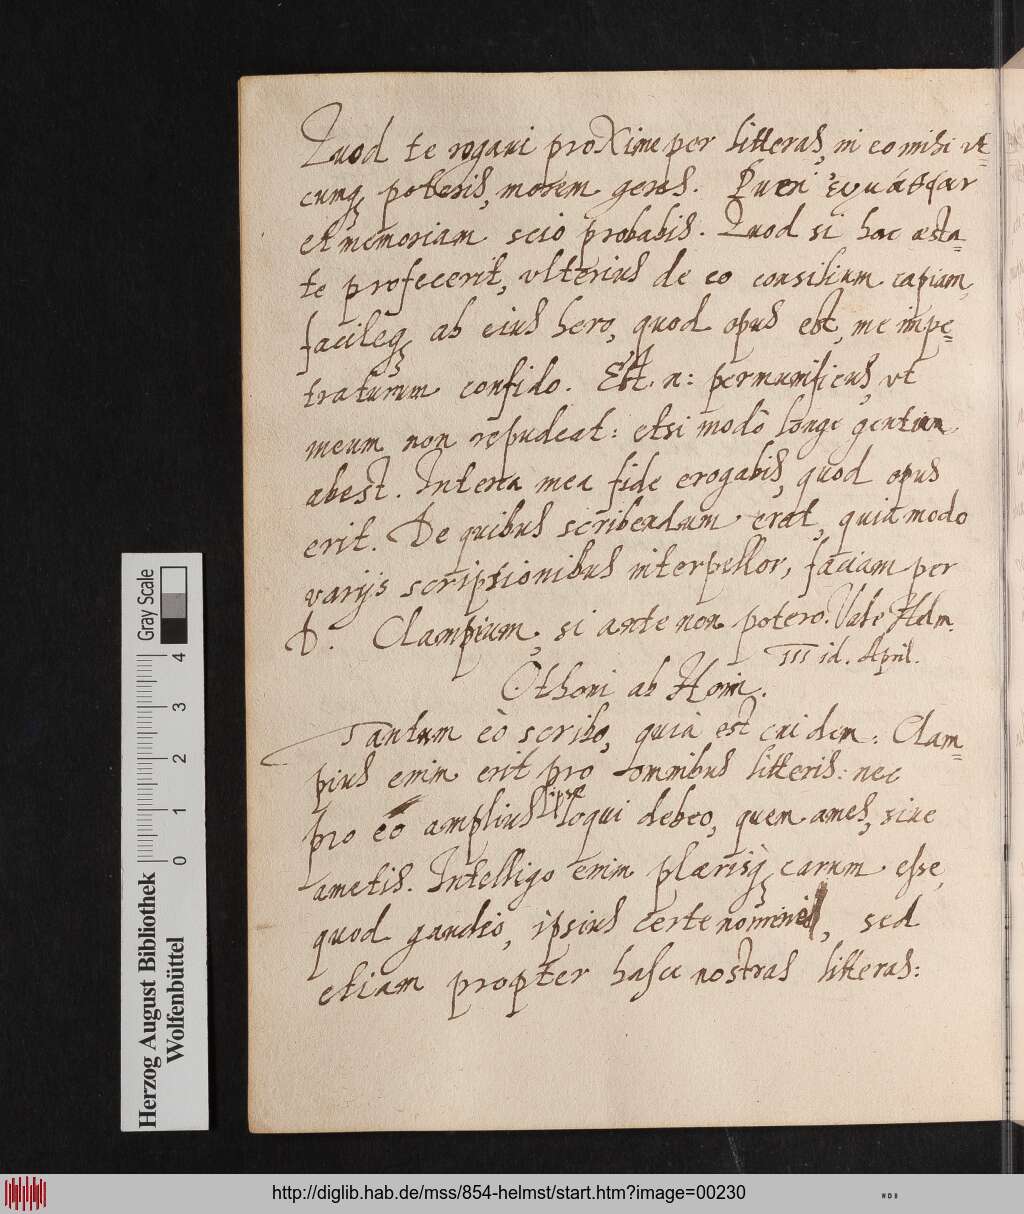 Quod te rogaui proxime per litteras, in eo mihi ut=
cunq; poteris, morem geres. Pueri
et memoriam scio probabis. Quod si hac æsta=
te profecerit, vlterius de eo consilium capiam,
facileq; ab eius hero, quod opus est, me impe=
traturum confido. Est. n: permunificus, vt
meum non repudeat: etsi modò longe gentium
abest. Interea mea fide erogabis, quod opus
erit. De quibus scribendum erat, quia modo
varijs scriptionibus interpellor, faciam per
D. Clampium, si ante non potero. Vale Helm.
III id. April.
Othoni ab Hoim.
Tantum eò scribo, quia est cui dem: Clam=
pius enim erit pro omnibus litteris: nec
pro eo amplius ipse loqui debeo, quem ames, siue
ametis. Intelligo enim plærisq; carum esse,
quod gaudeo, ipsius certe nominis, sed
etiam propter hasce nostras litteras:
Herzog August Bibliothek
Wolfenbüttel
Gray Scale
0 1 2 3 4
http://diglib.hab.de/mss/854-helmst/start.htm?image=00230